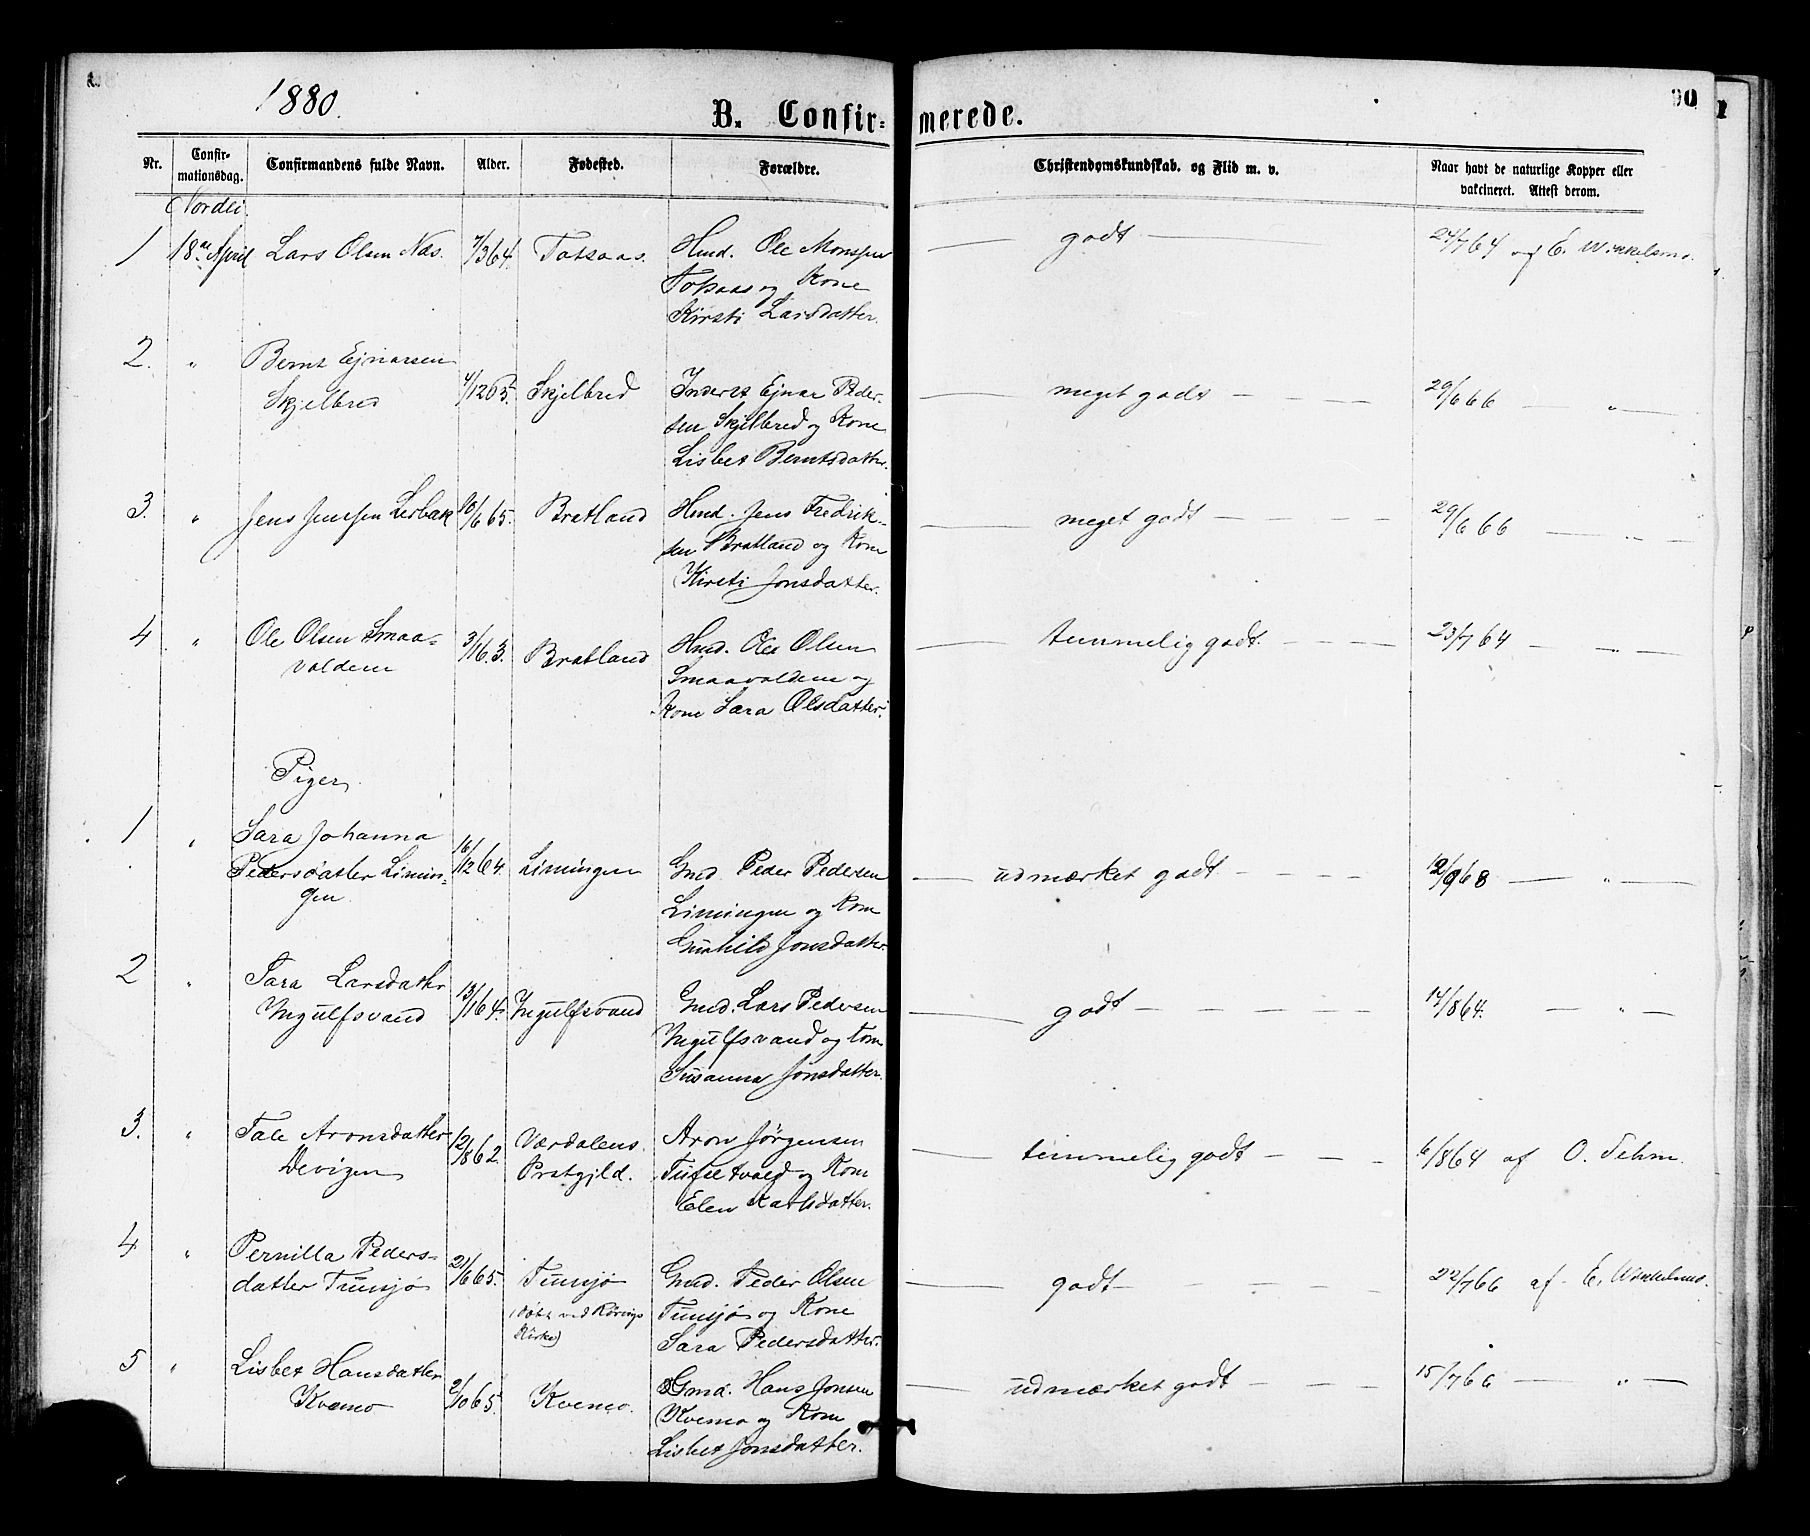 1880.
90
B. Confir=merede.
Nr. Confir-mationsdag. Confirmandens fulde Navn. Alder. Fødested. Forældre. Christendomskundskab. og Flid m. v. Naar havt de naturlige Kopper eller vakcineret. Attest derom.
Nordli
1 18de April Lars Olsen Næs. 7/3 64. Totsaas. Hmd. Ole Monsen godt 24/7 64 af E. Winkelsmo.
Totsaas og Kone
Kirsti Larsdatter.
2. " Bernt Ejnarsen
Skjelbred 4/12 65. Skjelbred Inderst Ejnar Peder- meget godt 29/6 66 "
sen Skjelbred og Kone
Lisbet Berntsdatter.
3. " Jens Jensen Lerbak 10/6 65. Bratland Hmd. Jens Fredrik- meget godt 29/6 66 "
sen Bratland og Kone
Kirsti Jonsdatter.
4 " Ole Olsen Smaa-
volden 3/1 63. Bratland Hmd. Ole Olsen temmelig godt 23/7 64 "
Smaavolden og
Kone Sara Olsdatter.
Piger
1 " Sara Johanna
Pedersdatter Limin-
gen 16/12 64. Limingen Gmd. Peder Pedersen udmærket godt 12/9 68 "
Limingen og Kone
Gunhild Jonsdatter.
2 " Sara Larsdatter
Ingulfsvand 13/1 64. Ingulfsvand Gmd. Lars Pedersen godt 14/8 64. "
Ingulfsvand og Kone
Susanna Jonsdatter.
3. " Tale Aronsdatter
Devigen 12/8 62. Værdalens
Præstgjld. Aron Jørgensen temmelig godt 6/8 64 af O. Sehm.
og Kone
Elen
4 " Pernilla Peders-
datter Tunsjø 21/6 65. Tunsjø
(døbt ved Rørvigs
Kirke) Gmd. Peder Olsen godt 22/7 66 af E. Winkelsmo.
Tunsjø og Kone
Sara Pedersdatter.
5 " Lisbet Hansdatter
Kvemo 2/10 65. Kvemo. Gmd. Hans Jonsen udmærket godt 15/7 66 "
Kvemo og Kone
Lisbet Jonsdatter.